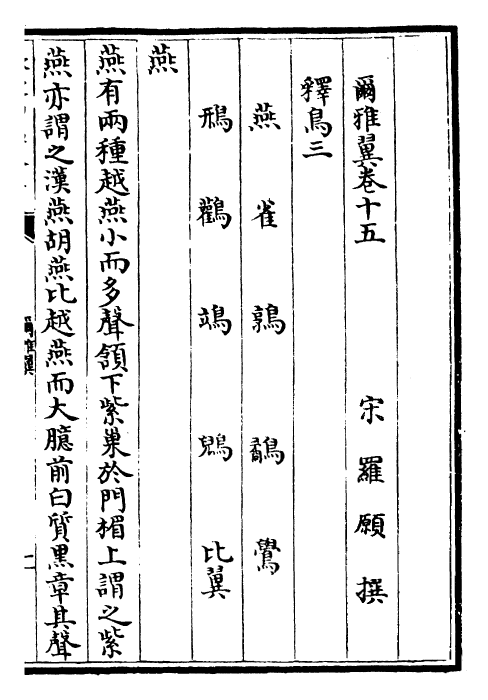 爾雅翼卷十五 宋 羅願 撰
釋鳥三
燕 雀 鶉 鶯
鳽 鸛 鴗 鶂 比翼
燕
燕有兩種越燕小而多聲頷下紫巢於門楣上謂之紫
燕亦謂之漢燕胡燕比越燕而大臆前白質黑章其聲
爾雅翼